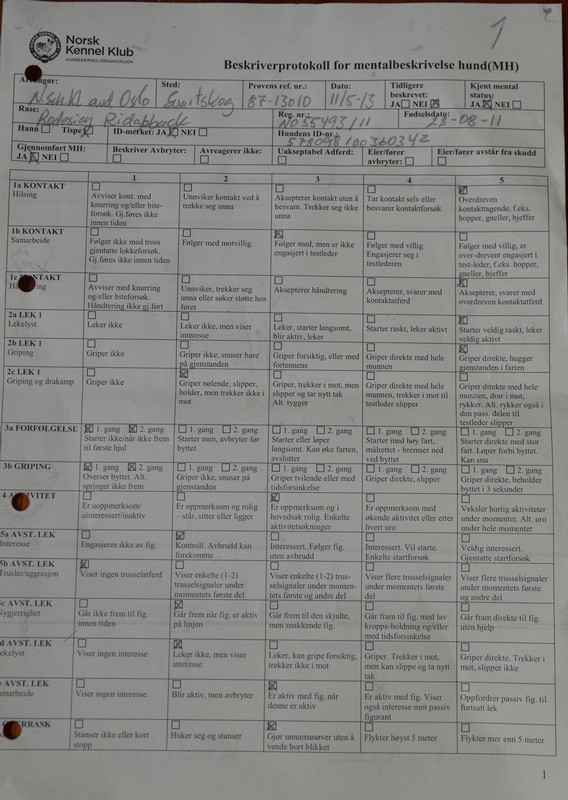 1
Norsk
Kennel Klub
HUNDEEIERNES ORGANISASJON
Beskriverprotokoll for mentalbeskrivelse hund(MH)
Sted:
Prøvens ref. nr.:
Dato:
Tidligere beskrevet:
Kjent mental status:
Oslo
87-13010
11/5-13
JA NEI
JA NEI
Rase:
Reg. nr.:
Fødselsdato:
-08-11
Hann Tispe ID-merket: JA NEI
Hundens ID-nr.:
578098100360342
Gjennomført MH:
JA NEI
Beskriver Avbryter:
Avreagerer ikke:
Uakseptabel Adferd:
Eier/fører avbryter:
Eier/fører avstår fra skudd
1 2 3 4 5
1a KONTAKT
Hilsing
Avviser kont. med knurring og/eller bite-forsøk. Gj.føres ikke innen tiden
Unnviker kontakt ved å trekke seg unna
Aksepterer kontakt uten å besvare. Trekker seg ikke unna
Tar kontakt selv eller besvarer kontaktforsøk
Overdreven kontakttagende, f.eks. hopper, gneller, bjeffer
1b KONTAKT
Samarbeide
Følger ikke med tross gjentatte lokkeforsøk. Gj.føres ikke innen tiden
Følger med motvillig.
Følger med, men er ikke engasjert i testleder
Følger med villig. Engasjerer seg i testlederen
Følger med villig, er over-drevent engasjert i test-leder, f.eks. hopper, gneller, bjeffer
Avviser med knurring og/eller biteforsøk. Håndtering ikke gj.ført
Unnviker, trekker seg unna eller søker støtte hos fører
Aksepterer håndtering
Aksepterer, svarer med kontaktatferd
Aksepterer, svarer med overdreven kontaktatferd
2a LEK 1
Lekelyst
Leker ikke
Leker ikke, men viser interesse
Leker. starter langsomt, blir aktiv, leker
Starter raskt, leker aktivt
Starter veldig raskt, leker veldig aktivt
2b LEK 1
Griping
Griper ikke
Griper ikke, snuser bare på gjenstanden
Griper forsiktig, eller med fortennene
Griper direkte med hele munnen
Griper direkte, hugger gjenstanden i farten
2c LEK 1
Griping og drakamp
Griper ikke
Griper nølende, slipper, holder, men trekker ikke i mot
Griper, trekker i mot, men slipper og tar nytt tak. Alt. tygger
Griper direkte med hele munnen, trekker i mot til testleder slipper
Griper direkte med hele munnen, drar i mot, rykker. Alt. rykker også i den pass. delen til testleder slipper
3a FORFØLGELSE
1. gang 2. gang
Starter ikke/når ikke frem til første hjul
1. gang 2. gang
Starter men, avbryter før byttet
1. gang 2. gang
Starter eller løper langsomt. Kan øke farten, avslutter
1. gang 2. gang
Starter med høy fart, målrettet - bremser ned ved byttet
1. gang 2. gang
Starter direkte med stor fart. Løper forbi byttet. Kan snu
3b GRIPING
1. gang 2. gang
Overser byttet. Alt. springer ikke frem
1. gang 2. gang
Griper ikke, snuser på gjenstanden
1. gang 2. gang
Griper tvilende eller med tidsforsinkelse
1. gang 2. gang
Griper direkte, slipper
1. gang 2. gang
Griper direkte, beholder byttet i 3 sekunder
Er uoppmerksom/ uinteressert/inaktiv
Er oppmerksom og rolig – står, sitter eller ligger
Er oppmerksom og i hovedsak rolig. Enkelte aktivitetsøkninger
Er oppmerksom med økende aktivitet eller etter hvert uro
Veksler hurtig aktiviteter under momentet. Alt. uro under hele momentet
5a AVST. LEK
Interesse
Engasjeres ikke av fig.
Kontroll. Avbrudd kan forekomme
Interessert. Følger fig. uten avbrudd
Interessert. Vil starte. Enkelte startforsøk
Veldig interessert. Gjentatte startforsøk
5b AVST. LEK
Trusler/aggresjon
Viser ingen trusselatferd
Viser enkelte (1-2) trusselsignaler under momentets første del
Viser enkelte (1-2) trus-selsignaler under momen-tets første og andre del
Viser flere trusselsignaler under momentets første del
Viser flere trusselsignaler under momentets første og andre del
c AVST. LEK
Nygjerrighet
Går ikke frem til fig. innen tiden
Går frem når fig. er aktiv på linjen
Går frem til den skjulte, men snakkende fig.
Går fram til fig. med lav kropps-holdning og/eller med tidsforsinkelse
Går fram direkte til fig. uten hjelp
d AVST. LEK
ekelyst
Viser ingen interesse
Leker ikke, men viser interesse
Leker, kan gripe forsiktig, trekker ikke i mot
Griper. Trekker i mot, men kan slippe og ta nytt tak
Griper direkte. Trekker i mot, slipper ikke
AVST. LEK
marbeide
Viser ingen interesse.
Blir aktiv, men avbryter
Er aktiv med fig. når denne er aktiv
Er aktiv med fig. Viser også interesse mot passiv figurant
Oppfordrer passiv fig. til fortsatt lek
Stanser ikke eller kort stopp
Huker seg og stanser
Gjør unnamanøver uten å vende bort blikket
Flykter høyst 5 meter
Flykter mer enn 5 meter
1